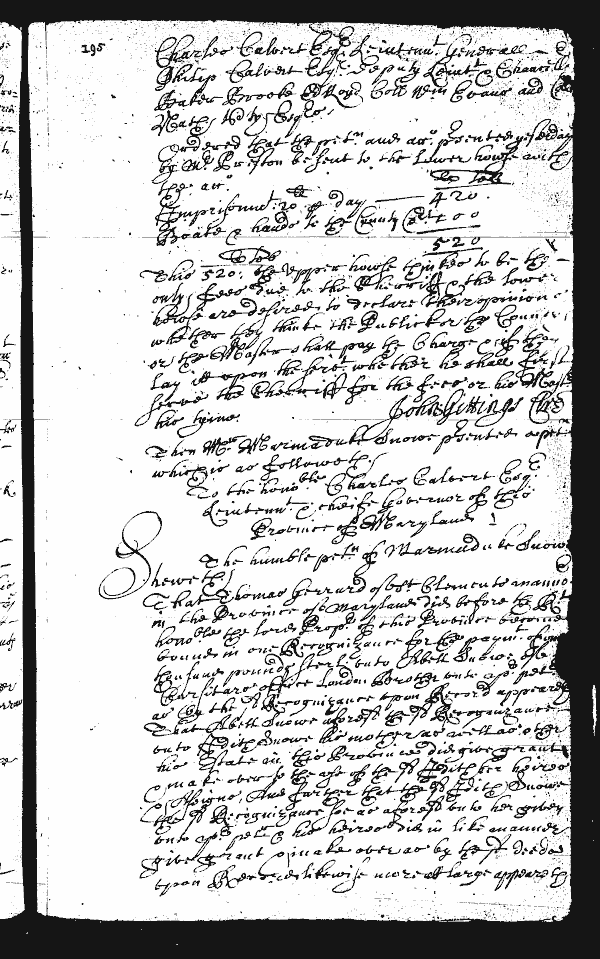 195
Charles Calvert Esqr. Leiutennt. Generall
Philip Calvert Esqr. deputy Leiutt. & Chancell
Baker Brooke Edw Lloyd Coll Wm Evans and
Ordered that the petn. and acc. psented yesterday
by Mr. Preston be sent to the Lower howse with
the acc.
To Tob
Imprisonmt. 20 ⅌ day 420
Boate & hands to the County 100
520
Tob
This 520: the Upper howse thinkes to be the
only fees due to the Sherriff & the lower
howse are desired to declare their opinion
whether they thinke the Publick or the County
or the Master shall pay the Charge & if they
lay itt upon the servt. whether he shall first
serve the Sherriff for the fees or his Mastr
his tyme.
John Gittings Cler
Then Mr. Marmaduke Snowe psented a petn
which is as followeth
To the honoble Charles Calvert Esqr.
Leiutennt. & cheife Governor of this
Province of Maryland
The humble petn of Marmaduke Snow
Sheweth
That Thomas Gerrard of St Clements mannor
in the Province of Maryland did before the Rt
honoble the lord Propr. of this Province become
bound in one Recognizance for the paymt. of one
thousand pounds sterl: unto Abell Snowe of
Cursitors office London Brother unto yor. petr
as by the sd Recognizance upon Record appeares
That Abell Snowe aforesd the sd Recognizance
unto Edith Snowe his mother as well as other
his Estate in this Province did give grant
& make over to the use of the sd Edith her heires
& Assignes. And further that the sd Edith Snowe
the sd Recognizance soe as aforesd unto her given
unto yor. petr. & his heires did in like manner
give grant & make over as by the sd deedes
upon Record likewise more att large appeareth